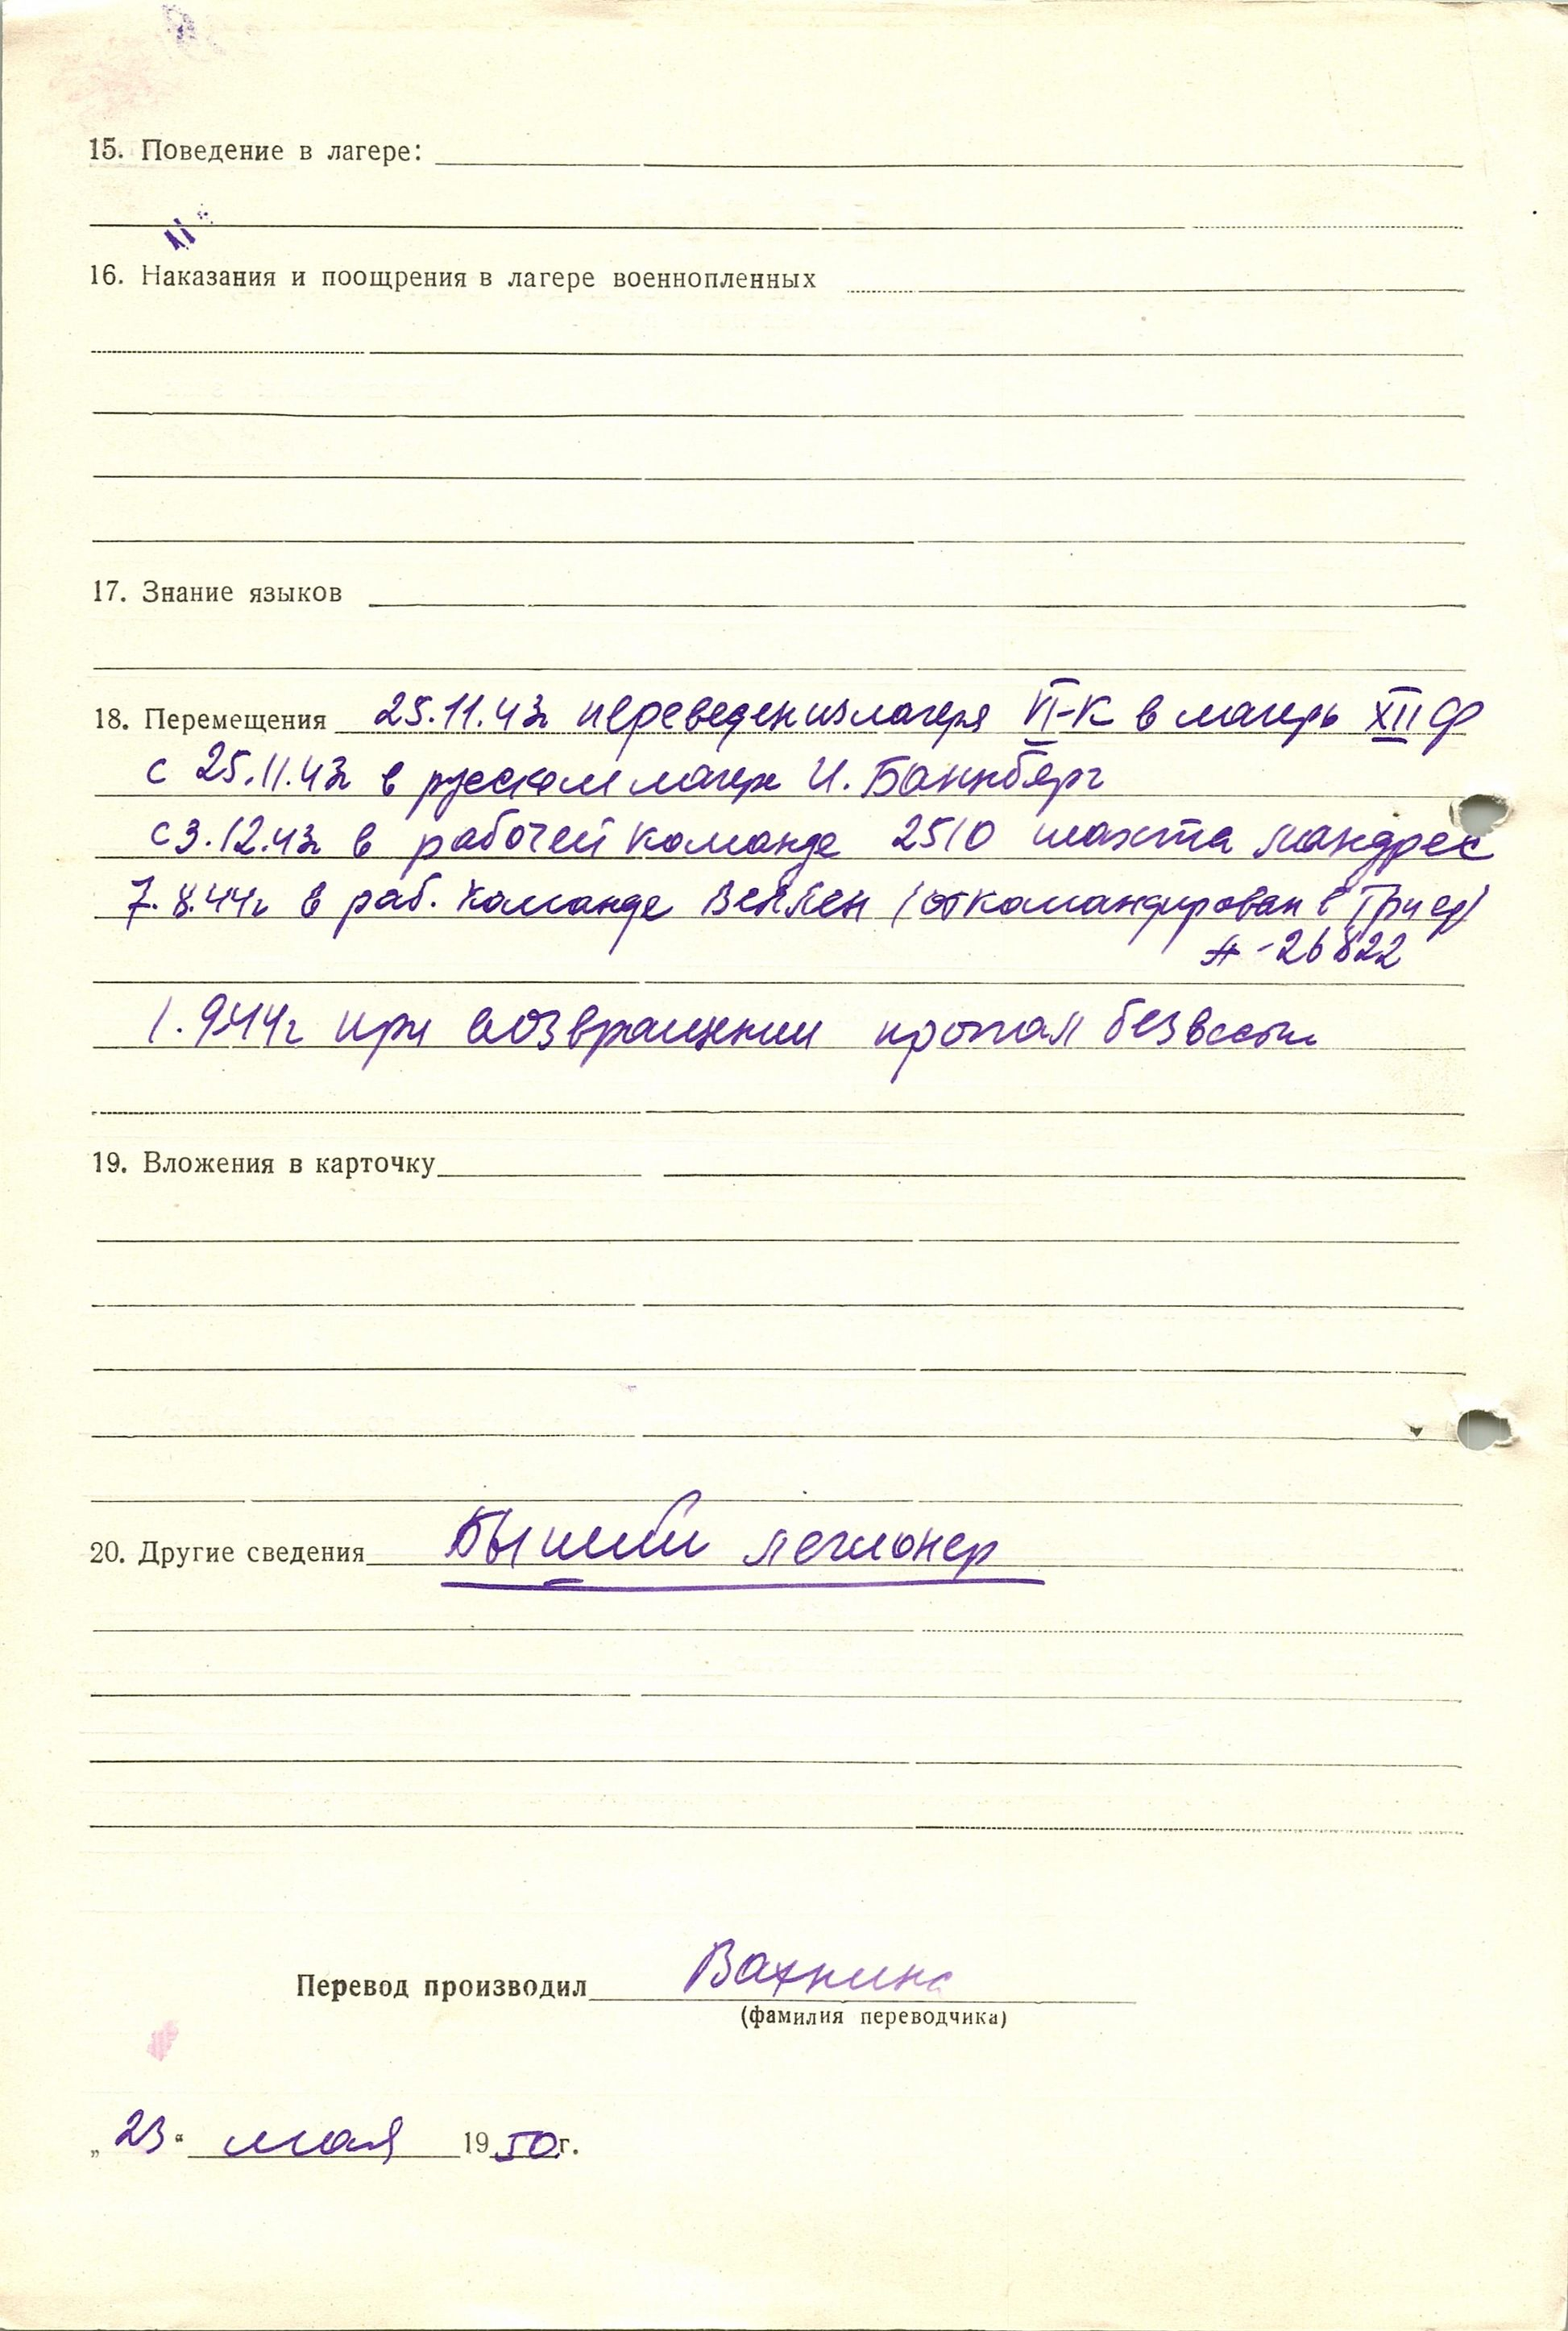 15. Поведение в лагере:
16. Наказания и поощрения в лагере военнопленных
17. Знание языков
18. Перемещения 25.11.43г переведен из лагеря VI-К в лагерь XII Ф
с 25.11.43г в русском лагере И. Баннберг
с 3.12.43г в рабочей команде 2510 шахта Ландрес
7.8.44г в раб. команде Веллен (откомандирован в Триер)
А-26822
1.9.44г при возвращении пропал без вести
19. Вложения в карточку
20. Другие сведения Бывший легионер
Перевод производил Вахнина
(фамилия переводчика)
„23“ мая 1950г.